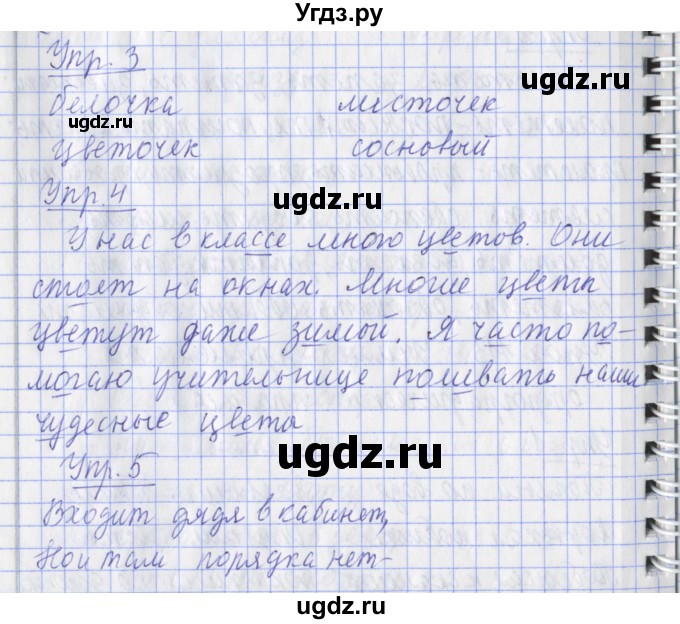 Угдз.ру
Упр. 3
ugdz.ru
белочка мосточек
ugdz.ru
цветочек сосновый
Упр. 4
ugdz.ru
У нас в классе много цветов. Они
стоят на окнах. Многие цветы
цветут даже зимой. Я часто по-
могаю учительнице поливать наши
чудесные цветы
ugdz.ru
Упр. 5
Входит дядя в кабинет,
Но и там порядка нет-
ugdz.ru
ugdz.ru